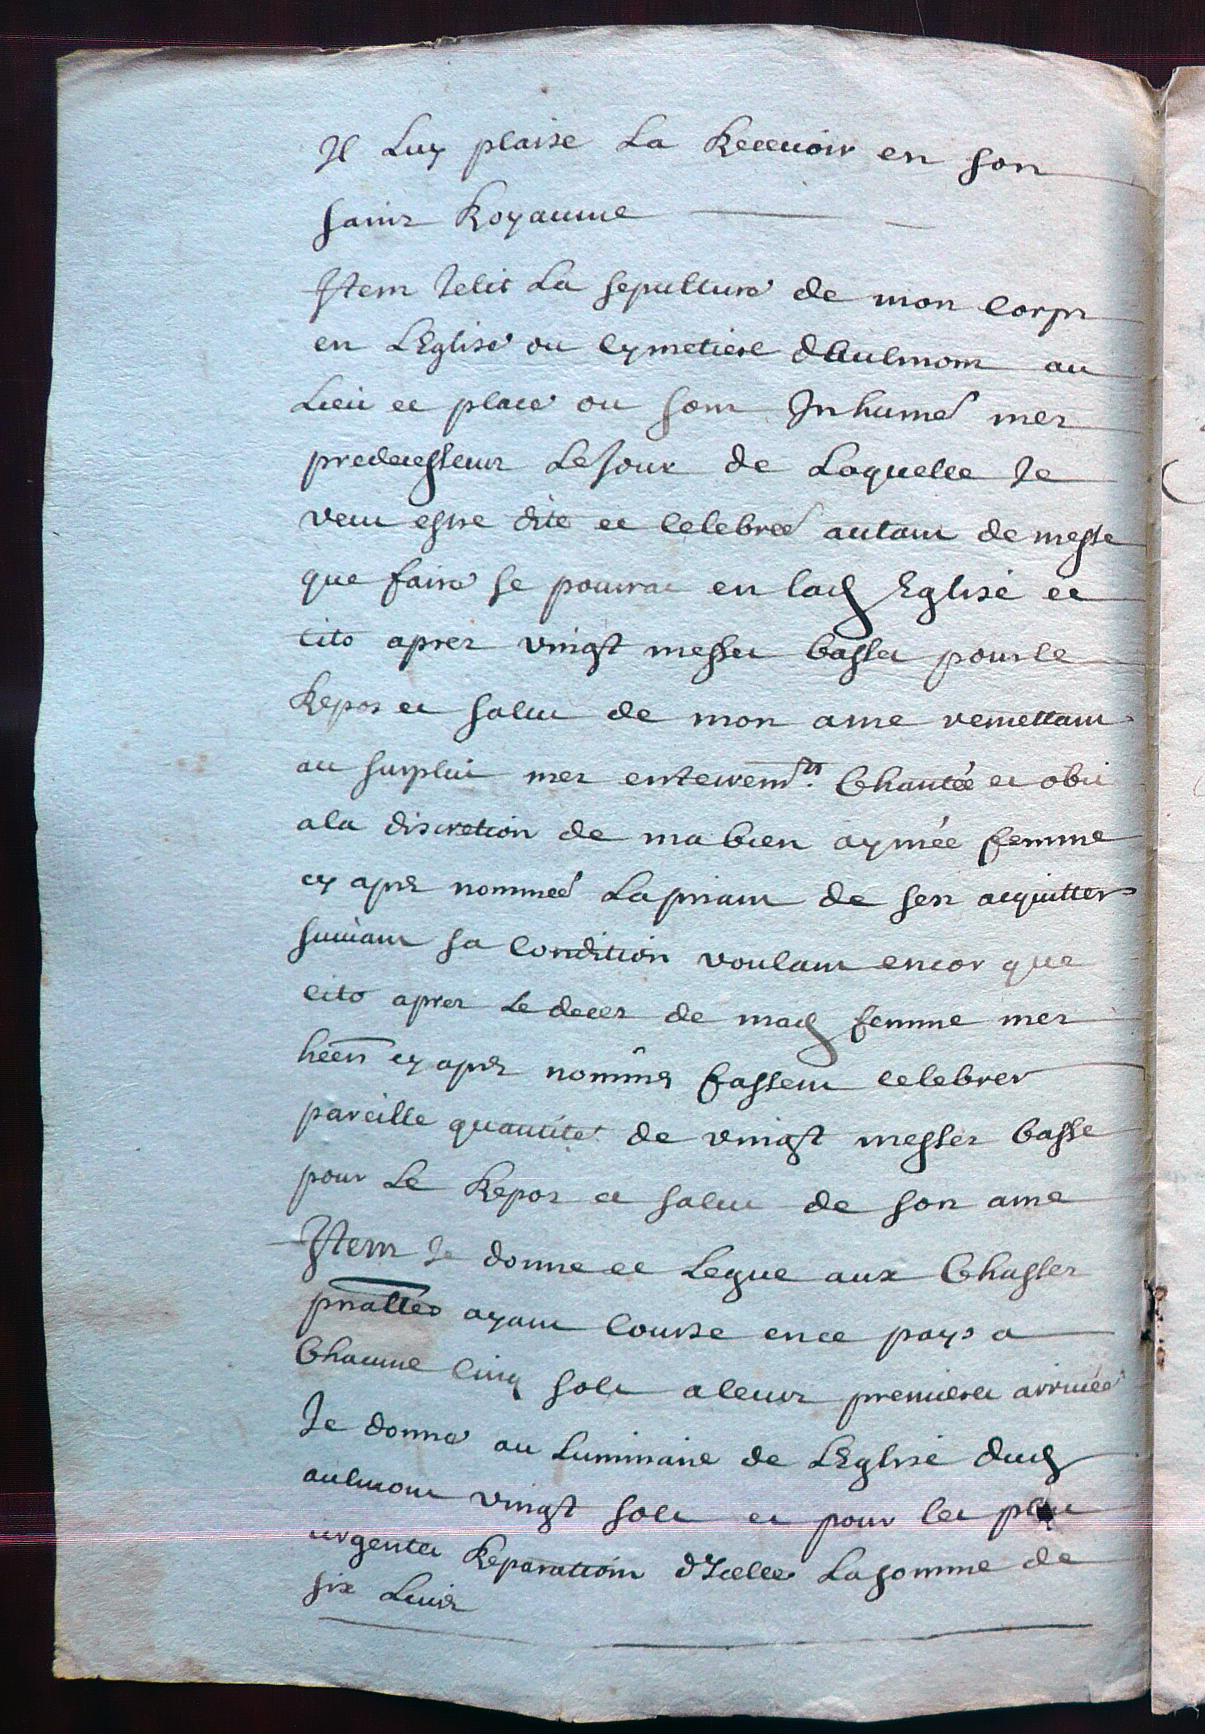 Il Luy plaise La Recevoir en son
saint Royaume
Item Jelit La sepulture de mon Corps
en LEglise ou Cymetiere dAulmont au
Lieu et place ou sont Inhumés mes
predecesseurs Le Jour de Laquelle Je
veut estre dite et Celebreé autant de messe
que faire se pourrat en lad Eglise et
cito apres vingt messes basses pour le
Repos et salut de mon ame remettant
au surplus mes enterremts. Chantée et obit
ala discretion de ma bien aymée femme
cy apres nommeé La priant de sen acquitter
suivant sa Condition voulant encor que
cito apres Le deces de mad femme mes
heērs cy apres nommés fassent celebrer
pareille quantité de vingt messes basse
pour Le Repos et salut de son ame
Item Je donne et Legue aux Chasses
pnalles ayant Course en ce pays a
Chacune Cinq sols a leurs premieres arrivée
Je donne au Luminaire de LEglise dud
aulmont vingt sols et pour les plus
urgentes Reparation dIcelle La somme de
six Livres